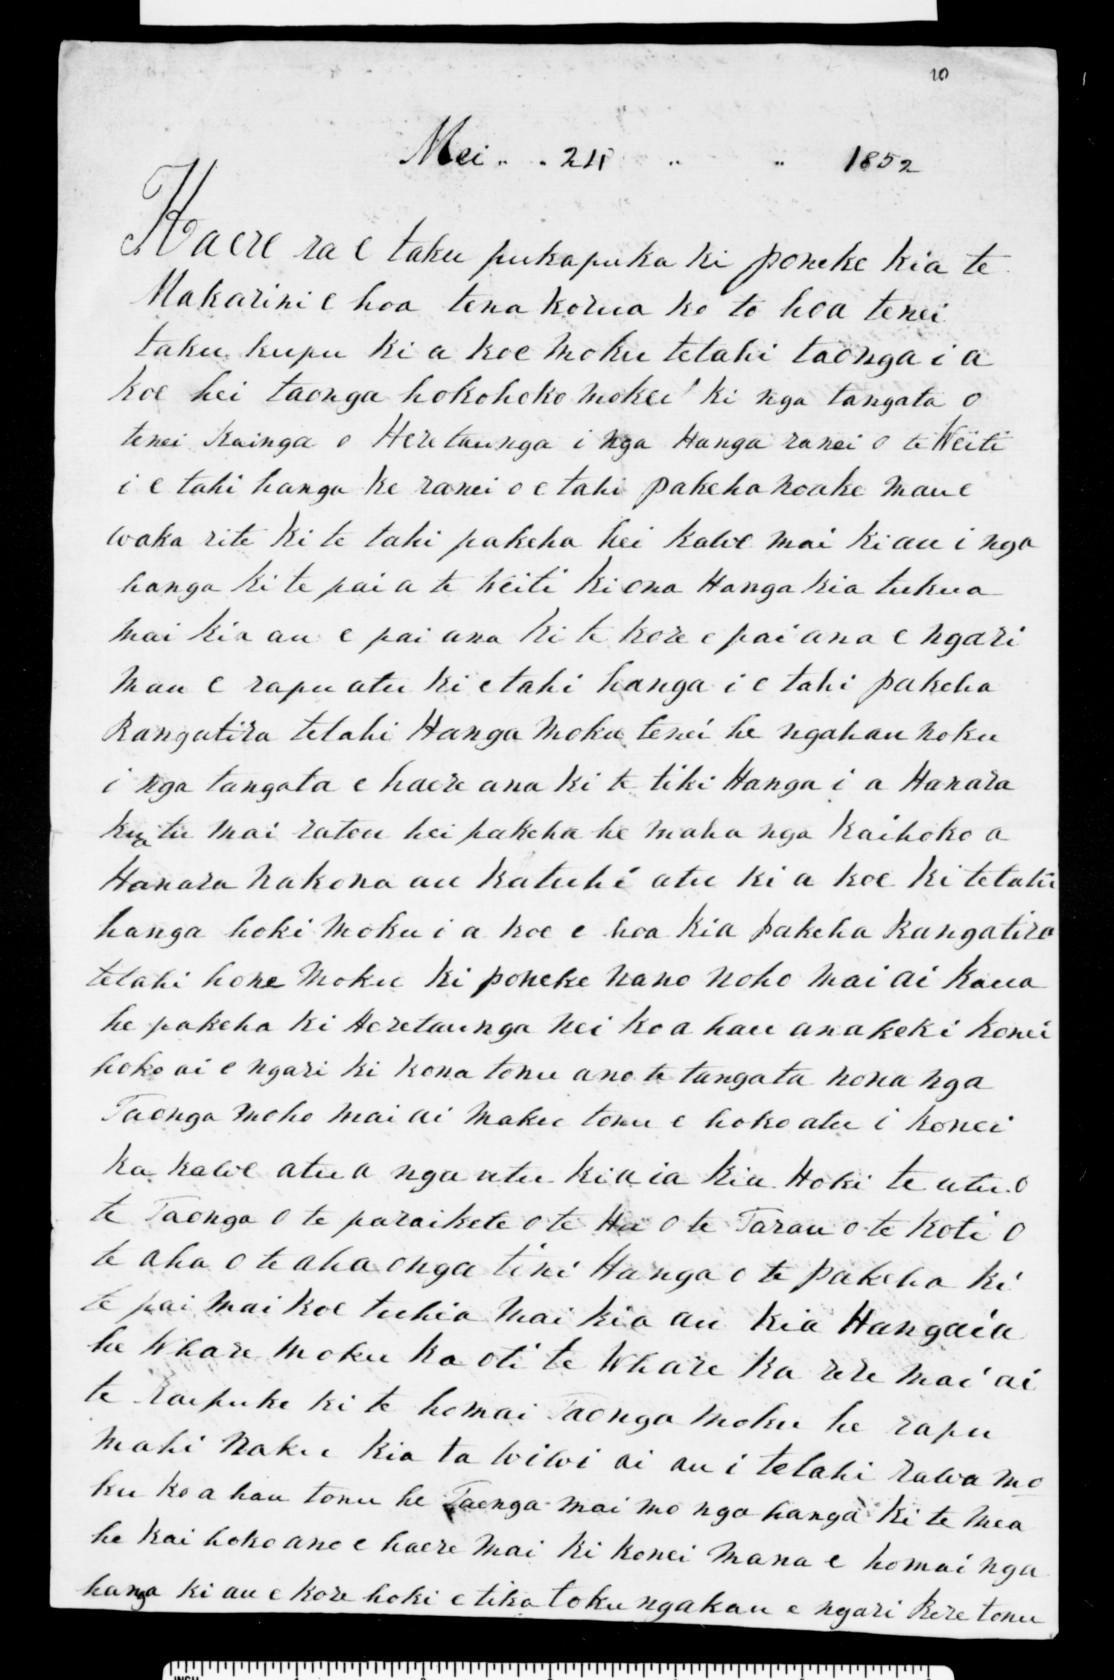 10
Mei .. . 24 .. .. 1852
Haere ra e taku pukapuka ki poneke kia te
Makarini e hoa tena korua ko to hoa tenei
taku kupu ki a koe moku tetahi taonga i a
koe hei taonga hokohoko mokū ki nga tangata o
tenei Kainga o Heretaunga i nga Hanga ranei o te Weiti
i e tahi hanga ke ranei o e tahi pakeha noake mau e
waka rite ki te tahi pakeha hei kawe mai ki au i nga
hanga ki te pai a te Weiti ki ona Hanga kia tukua
mai kia au e pai ana ki te kore e pai ana e ngari
mau e rapu atu ki etahi hanga i e tahi pakeha
Rangatira tetahi Hanga moku tenei he ngahau noku
i nga tangata e haere ana ki te tiki Hanga i a Hanara
kua tu mai ratou hei pakeha he maha nga kaihoko a
Hanara nakona au katuhi atu ki a koe ki tetahi
hanga hoki moku i a koe e hoa kia pakeha Rangatira
tetahi hone moku ki poneke nano noho mai ai kaua
he pakeha ki Heretaunga nei ko a hau anake ki konei
hoko ai e ngari ki kona tonu ano te tangata nona nga
Taonga moho mai ai maku tonu e hoko atu i konei
ka kawe atu a nga utu kia ia kia Hoki te utu o
te Taonga o te paraikete o te Hu o te Tarau o te koti o
te aha o te aha onga tini Hanga o te pakeha ki
te pai mai koe tuhia mai kia au kia Hangaia
he Whare moku ka oti te Whare ka rere mai ai
te kaipuke ki te homai Taonga moku he rapu
mahi naku kia ta wiwi ai au i tetahi rawa mo
ku ko a hau tonu he Taonga mai mo nga hanga ki te mea
he kai hoko ano e haere mai ki konei mana e homai nga
hanga ki au e kore hoki e tika toku ngakau e ngari Rere tonu